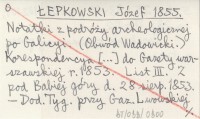 ŁEPKOWSKI Józef 1855.
Notatki z podróży archeologicznej
po Galicyi. (Obwód Wadowicki).
Korespondencya [...] do Gazety war-
szawskiej r. 1853. List III. Z
pod Babiej góry d. 28 sierp. 1853.
— Dod. Tyg. przy Gaz. Lwowskiej.